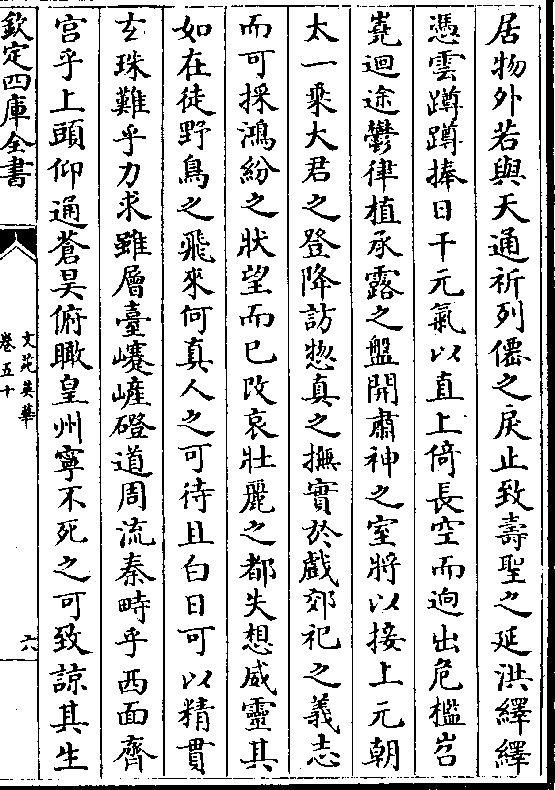 居物外若與天通祈列僊之戾止致壽聖之延洪繹繹
憑雲蹲蹲捧日干元氣以直上倚長空而逈出危檻岧
嶤迴途鬱律植承露之盤開肅神之室將以接上元朝
太一乘大君之登降訪惣真之撫實於戲郊祀之義志
而可採鴻紛之狀望而已改哀壯麗之都失想威靈其
如在徒野鳥之飛來何真人之可待且白日可以精貫
玄珠難乎力求雖層臺㠥嵼磴道周流秦畤乎西面齊
宫乎上頭仰通蒼昊俯瞰皇州寧不死之可致諒其生
欽定四庫全書
文苑英華
卷五十
六